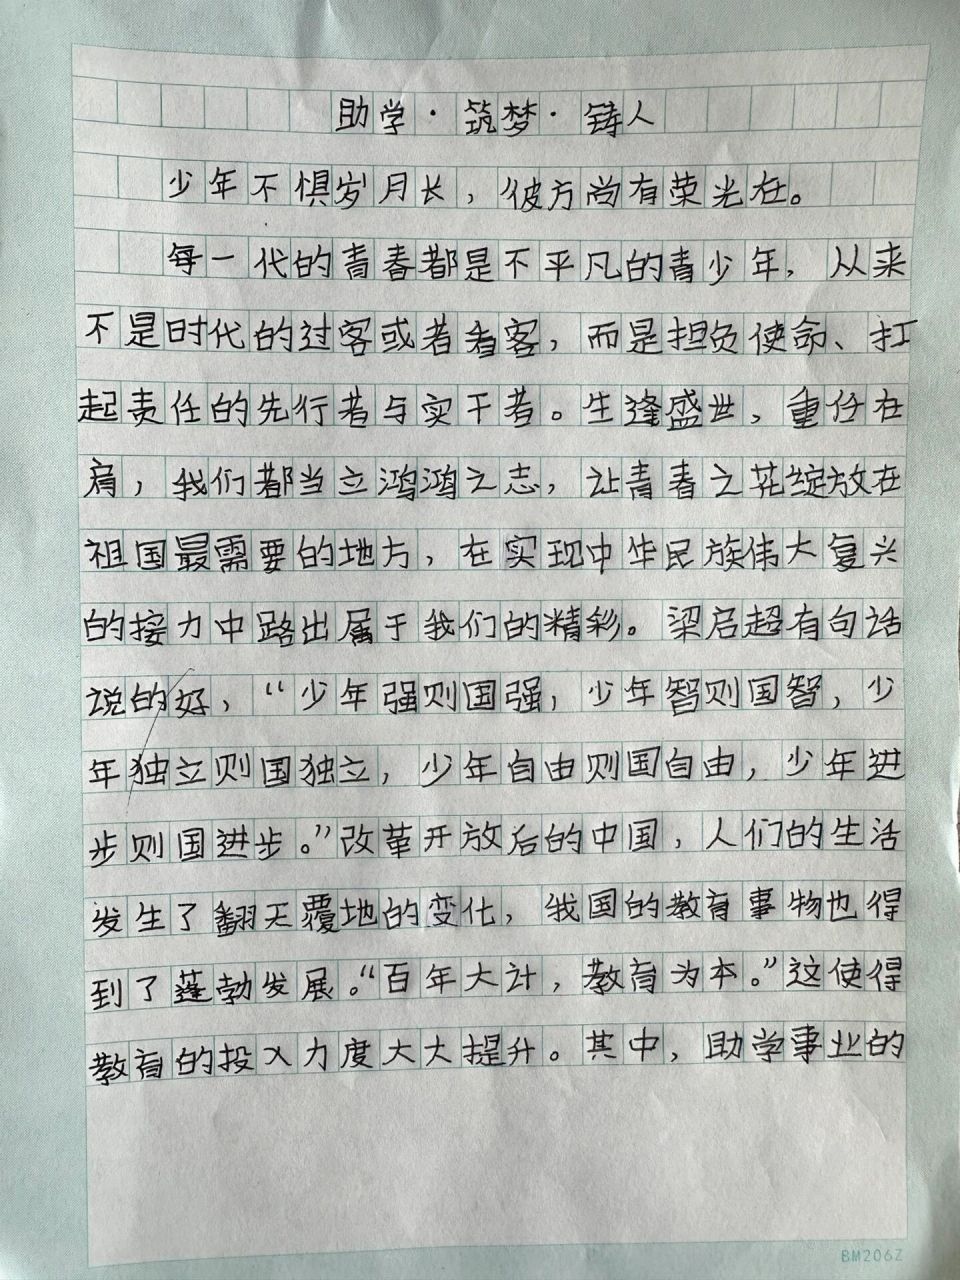 助学·筑梦·铸人
少年不惧岁月长，彼方尚有荣光在。
每一代的青春都是不平凡的青少年，从来
不是时代的过客或者看客，而是担负使命、扛
起责任的先行者与实干者。生逢盛世，重任在
肩，我们都当立鸿鸿之志，让青春之花绽放在
祖国最需要的地方，在实现中华民族伟大复兴
的接力中路出属于我们的精彩。梁启超有句话
说的好，“少年强则国强，少年智则国智，少
年独立则国独立，少年自由则国自由，少年进
步则国进步。”改革开放后的中国，人们的生活
发生了翻天覆地的变化，我国的教育事物也得
到了蓬勃发展。“百年大计，教育为本。”这使得
教育的投入力度大大提升。其中，助学事业的
BM206Z